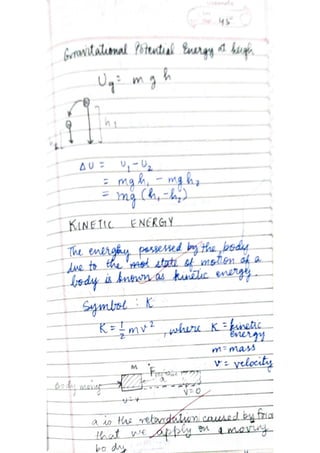 45
Gravitational Potential Energy at heigh
Ug = m g h
h1
ΔU = U1 - U2
= mgh1 - mgh2
= mg (h1 - h2)
KINETIC ENERGY
The energhy possessed by the body
due to the state of motion of a
body is known as kinetic energy.
Symbol : K
K = 1/2 mv², where K = kinetic
energy
m = mass
v = velocity
M
a
body moving
v=0
a is the retardation caused by
that we apply on a moving
body